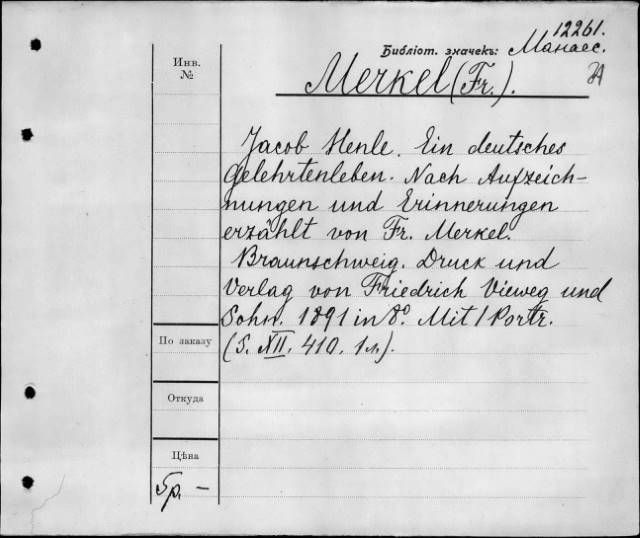 12261.
Библіот. значекъ: Манаес.
Инв.
№
Merkel (Fr.).
Jacob Henle. Ein deutsches
Gelehrtenleben. Nach Aufzeich-
nungen und Erinnerungen
erzählt von Fr. Merkel.
Braunschweig. Druck und
Verlag von Friedrich Vieweg und
Sohn. 1891 in 8º. Mit 1 Portr.
(S. XII. 410. 1 л.).
По заказу
Откуда
Цѣна
5р. –